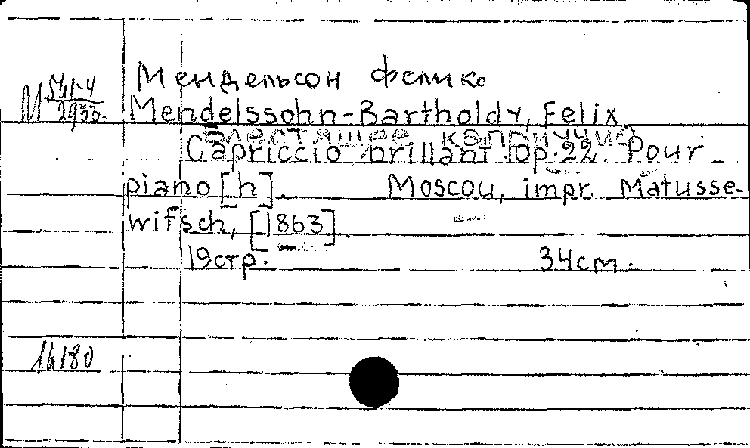 Мендельсон Феликс
М 541-4
2933
Mendelssohn-Bartholdy, Felix
Блестящее каприччио
Capriccio brillant op. 22. Pour
piano [h]. Moscou, impr. Matusse-
witsch, [1863]
19стр. 34cm.
16180